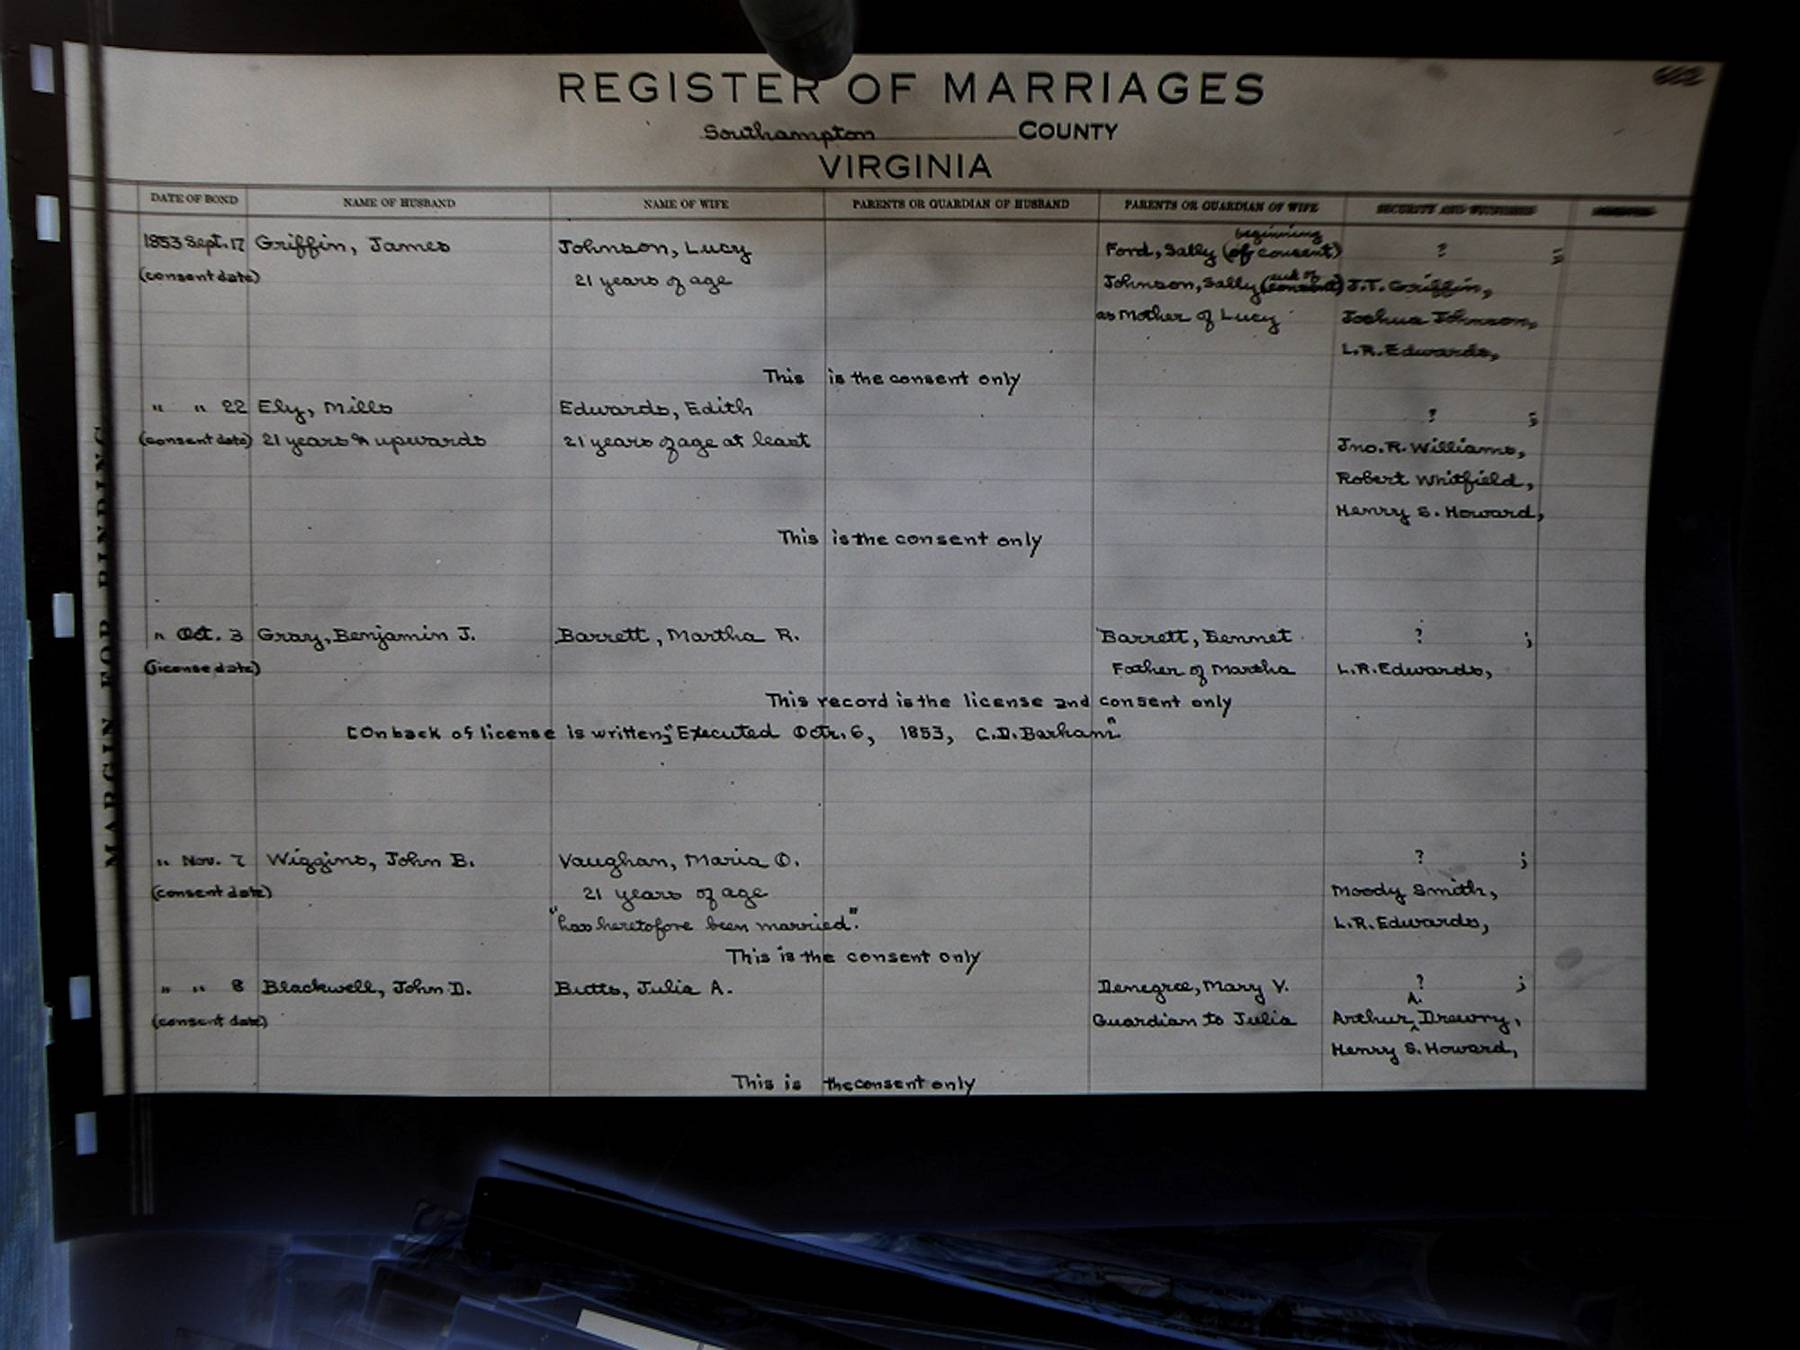 REGISTER OF MARRIAGES
Southampton COUNTY
VIRGINIA
MARGIN FOR BINDING
DATE OF BOND NAME OF HUSBAND NAME OF WIFE PARENTS OR GUARDIAN OF HUSBAND PARENTS OR GUARDIAN OF WIFE SECURITY AND WITNESSES
beginning
1853 Sept. 17 Griffin, James Johnson, Lucy Ford, Sally (of consent) ? ;
(consent date) 21 years of age Johnson, Sally (end of consent) J.T. Griffin,
as Mother of Lucy Joshua Johnson,
L.R. Edwards,
This is the consent only
" " 22 Ely, Mills Edwards, Edith ? ;
(consent date) 21 years & upwards 21 years of age at least Jno. R. Williams,
Robert Whitfield,
Henry S. Howard,
This is the consent only
" Oct. 3 Gray, Benjamin J. Barrett, Martha R. Barrett, Bennet ? ;
(license date) Father of Martha L.R. Edwards,
This record is the license and consent only
[On back of license is written; "Executed Octr. 6, 1853, C.D. Barham"
" Nov. 7 Wiggins, John B. Vaughan, Maria O. ? ;
(consent date) 21 years of age Moody Smith,
"has heretofore been married". L.R. Edwards,
This is the consent only
" " 8 Blackwell, John D. Butts, Julia A. Denegree, Mary V. ? ;
A.
(consent date) Guardian to Julia Arthur Drewry,
Henry S. Howard,
This is the consent only